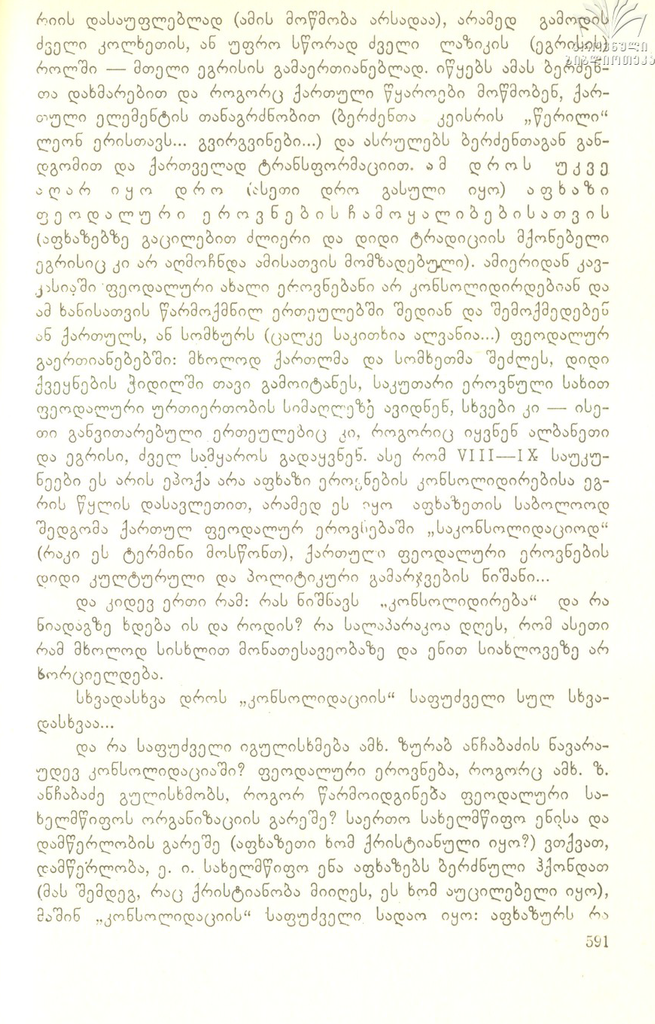 რიის დასაუფლებლად (ამის მოწმობა არსადაა), არამედ გამოდის
ძველი კოლხეთის, ან უფრო სწორად ძველი ლაზიკის (ეგრისის)
როლში — მთელი ეგრისის გამაერთიანებლად. იწყებს ამას ბერძენ-
თა დახმარებით და როგორც ქართული წყაროები მოწმობენ, ქარ-
თული ელემენტის თანაგრძნობით (ბერძენთა კეისრის „წერილი“
ლეონ ერისთავს... გვირგვინები...) და ასრულებს ბერძენთაგან გან-
დგომით და ქართველად ტრანსფორმაციით. ამ დროს უკვე
აღარ იყო დრო (ასეთი დრო გასული იყო) აფხაზი
ფეოდალური ეროვნებისჩამოყალიბებისათვის
(აფხაზებზე გაცილებით ძლიერი და დიდი ტრადიციის მქონებელი
ეგრისიც კი არ აღმოჩნდა ამისათვის მომზადებული). ამიერიდან კავ-
კასიაში ფეოდალური ახალი ეროვნებანი არ კონსოლიდირდებიან და
ამ ხანისათვის წარმოქმნილ ერთეულებში შედიან და შემოქმედებენ
ან ქართულს, ან სომხურს (ცალკე საკითხია ალვანია...) ფეოდალურ
გაერთიანებებში: მხოლოდ ქართლმა და სომხეთმა შეძლეს, დიდი
ქვეყნების ჭიდილში თავი გამოიტანეს, საკუთარი ეროვნული სახით
ფეოდალური ურთიერთობის სიმაღლეზე ავიდნენ, სხვები კი — ისე-
თი განვითარებული ერთეულებიც კი, როგორიც იყვნენ ალბანეთი
და ეგრისი, ძველ სამყაროს გადაყვნენ. ასე რომ VIII—IX საუკუ-
ნეები ეს არის ეპოქა არა აფხაზი ეროვნების კონსოლიდირებისა ეგ-
რის წყლის დასავლეთით, არამედ ეს იყო აფხაზეთის საბოლოოდ
შედგომა ქართულ ფეოდალურ ეროვნებაში „საკონსოლიდაციოდ“
(რაკი ეს ტერმინი მოსწონთ), ქართული ფეოდალური ეროვნების
დიდი კულტურული და პოლიტიკური გამარჯვების ნიშანი...
და კიდევ ერთი რამ: რას ნიშნავს „კონსოლიდირება“ და რა
ნიადაგზე ხდება ის და როდის? რა სალაპარაკოა დღეს, რომ ასეთი
რამ მხოლოდ სისხლით მონათესავეობაზე და ენით სიახლოვეზე არ
ხორციელდება.
სხვადასხვა დროს „კონსოლიდაციის“ საფუძველი სულ სხვა-
დასხვაა...
და რა საფუძველი იგულისხმება ამხ. ზურაბ ანჩაბაძის ნავარა-
უდევ კონსოლიდაციაში? ფეოდალური ეროვნება, როგორც ამხ. ზ.
ანჩაბაძე გულისხმობს, როგორ წარმოიდგინება ფეოდალური სა-
ხელმწიფოს ორგანიზაციის გარეშე? საერთო სახელმწიფო ენისა და
დამწერლობის გარეშე (აფხაზეთი ხომ ქრისტიანული იყო?) ვთქვათ,
დამწერლობა, ე. ი. სახელმწიფო ენა აფხაზებს ბერძნული ჰქონდათ
(მას შემდეგ, რაც ქრისტიანობა მიიღეს, ეს ხომ აუცილებელი იყო),
მაშინ „კონსოლიდაციის“ საფუძველი სადაო იყო: აფხაზურს რა
591